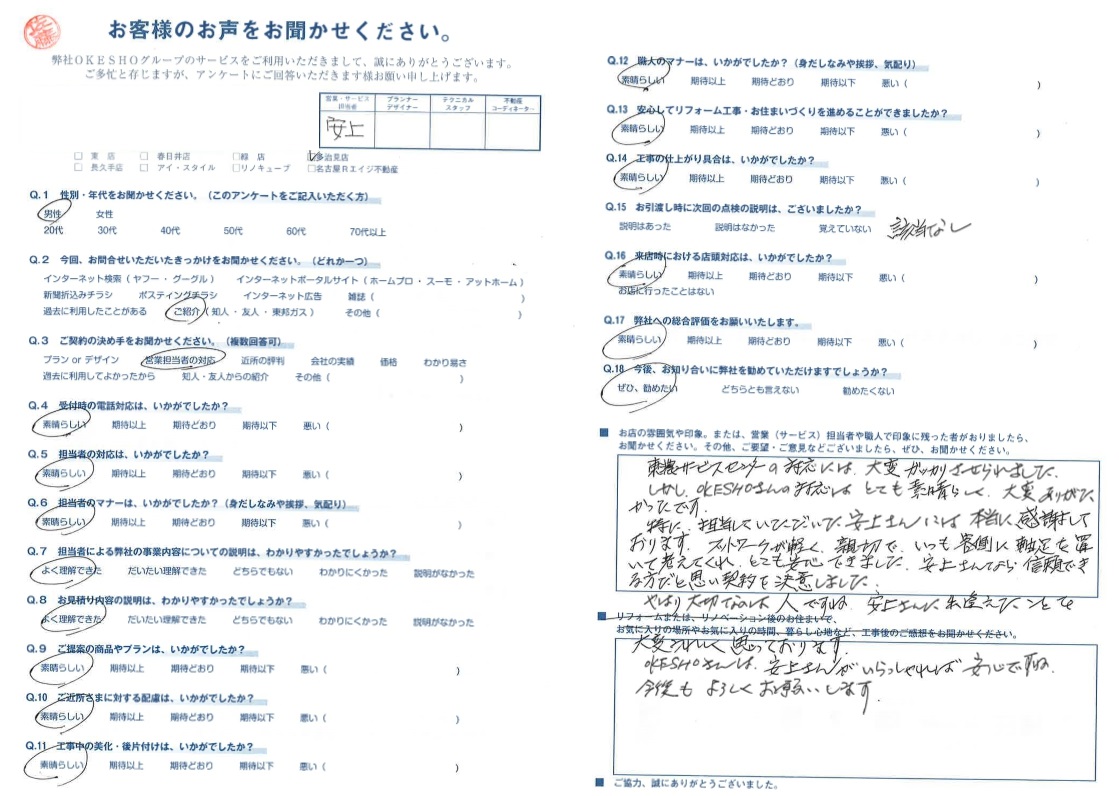 佐藤
お客様のお声をお聞かせください。
弊社OKESHOグループのサービスをご利用いただきまして、誠にありがとうございます。
ご多忙と存じますが、アンケートにご回答いただきます様お願い申し上げます。
営業・サービス担当者 プランナーデザイナー テクニカルスタッフ 不動産コーディネーター
安上
□ 東 店 □ 春日井店 □緑 店 ☑多治見店
□ 長久手店 □ アイ・スタイル □リノキューブ □名古屋Rエイジ不動産
Q.1 性別・年代をお聞かせください。(このアンケートをご記入いただく方)
男性 女性
20代 30代 40代 50代 60代 70代以上
Q.2 今回、お問合せいただいたきっかけをお聞かせください。(どれか一つ)
インターネット検索(ヤフー・グーグル) インターネットポータルサイト(ホームプロ・スーモ・アットホーム)
新聞折込みチラシ ポスティングチラシ インターネット広告 雑誌( )
過去に利用したことがある ご紹介(知人・友人・東邦ガス) その他( )
Q.3 ご契約の決め手をお聞かせください。(複数回答可)
プラン or デザイン 営業担当者の対応 近所の評判 会社の実績 価格 わかり易さ
過去に利用してよかったから 知人・友人からの紹介 その他( )
Q.4 受付時の電話対応は、いかがでしたか?
素晴らしい 期待以上 期待どおり 期待以下 悪い( )
Q.5 担当者の対応は、いかがでしたか?
素晴らしい 期待以上 期待どおり 期待以下 悪い( )
Q.6 担当者のマナーは、いかがでしたか?(身だしなみや挨拶、気配り)
素晴らしい 期待以上 期待どおり 期待以下 悪い( )
Q.7 担当者による弊社の事業内容についての説明は、わかりやすかったでしょうか?
よく理解できた だいたい理解できた どちらでもない わかりにくかった 説明がなかった
Q.8 お見積り内容の説明は、わかりやすかったでしょうか?
よく理解できた だいたい理解できた どちらでもない わかりにくかった 説明がなかった
Q.9 ご提案の商品やプランは、いかがでしたか?
素晴らしい 期待以上 期待どおり 期待以下 悪い( )
Q.10 ご近所さまに対する配慮は、いかがでしたか?
素晴らしい 期待以上 期待どおり 期待以下 悪い( )
Q.11 工事中の美化・後片付けは、いかがでしたか?
素晴らしい 期待以上 期待どおり 期待以下 悪い( )
Q.12 職人のマナーは、いかがでしたか?(身だしなみや挨拶、気配り)
素晴らしい 期待以上 期待どおり 期待以下 悪い( )
Q.13 安心してリフォーム工事・お住まいづくりを進めることができましたか?
素晴らしい 期待以上 期待どおり 期待以下 悪い( )
Q.14 工事の仕上がり具合は、いかがでしたか?
素晴らしい 期待以上 期待どおり 期待以下 悪い( )
Q.15 お引渡し時に次回の点検の説明は、ございましたか?
説明はあった 説明はなかった 覚えていない 該当なし
Q.16 来店時における店頭対応は、いかがでしたか?
素晴らしい 期待以上 期待どおり 期待以下 悪い( )
お店に行ったことはない
Q.17 弊社への総合評価をお願いいたします。
素晴らしい 期待以上 期待どおり 期待以下 悪い( )
Q.18 今後、お知り合いに弊社を勧めていただけますでしょうか?
ぜひ、勧めたい どちらとも言えない 勧めたくない
■ お店の雰囲気や印象。または、営業(サービス)担当者や職人で印象に残った者がおりましたら、
お聞かせください。その他、ご要望・ご意見などございましたら、ぜひ、お聞かせください。
東農サービスセンターの対応には、大変ガッカリさせられました。
しかし、OKESHOさんの対応はとても素晴らしく、大変ありがた
かったです。
特に、担当していただいた安上さんには本当に感謝して
おります。フットワークが軽く、親切で、いつも客側に軸足を置
いて考えてくれ、とても安心できました。安上さんなら信頼でき
る方だと思い契約を決意しました。
やはり大切なのは人ですね。安上さんに出逢えたことを
■ リフォームまたは、リノベーション後のお住まいで、
お気に入りの場所やお気に入りの時間、暮らし心地など、工事後のご感想をお聞かせください。
大変うれしく思っております。
OKESHOさんは、安上さんがいらっしゃれば安心ですね。
今後もよろしくお願いします。
■ ご協力、誠にありがとうございました。